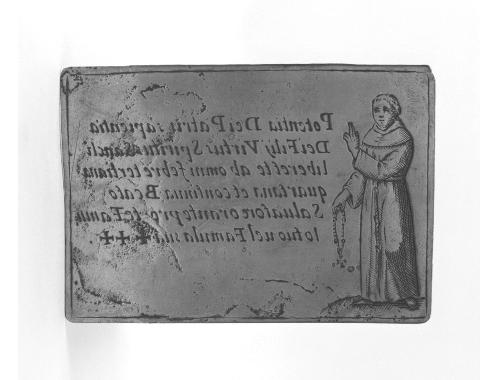 Potentia Dei Patris sapientia
Dei Fily Virtus Spiritus Sancti
liberet te ab omni febre tertiana
quartana et continua Beato
Salvatore orante pro te Famu
lo tuo uel Famula sua ++++